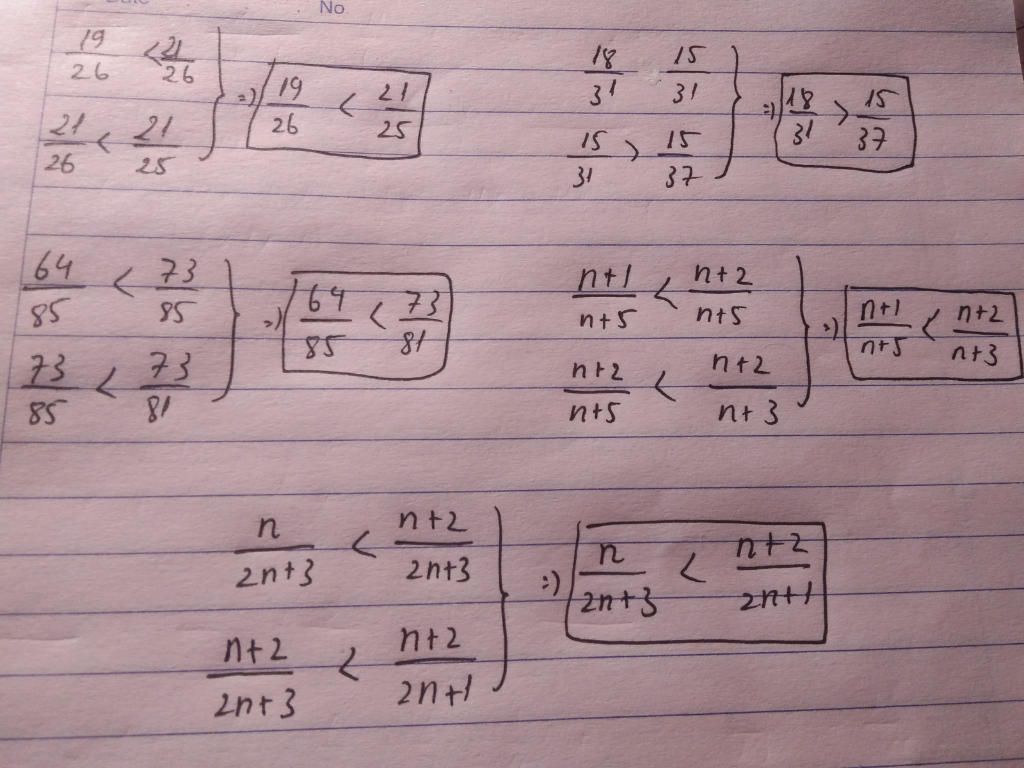 No
19/26 < 21/26
21/26 < 21/25
=) 19/26 < 21/25
18/31 15/31
15/31 > 15/37
=) 18/31 > 15/37
64/85 < 73/85
73/85 < 73/81
=) 64/85 < 73/81
n+1/n+5 < n+2/n+5
n+2/n+5 < n+2/n+3
=) n+1/n+5 < n+2/n+3
n/2n+3 < n+2/2n+3
n+2/2n+3 < n+2/2n+1
=) n/2n+3 < n+2/2n+1